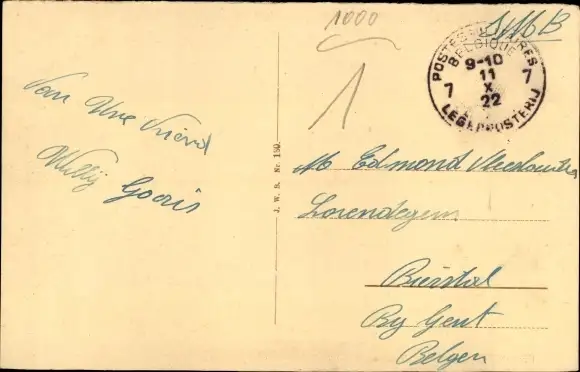 1000
S.M.B
1
POSTES MILITAIRES
BELGIQUE
9-10
11
X
22
7 7
LEGERPOSTERIJ
Van Uwe Vriend
Willy Gooris
J. W. B. Nr. 150.
Mr Edmond
Lovendegem
By Gent
Belgen